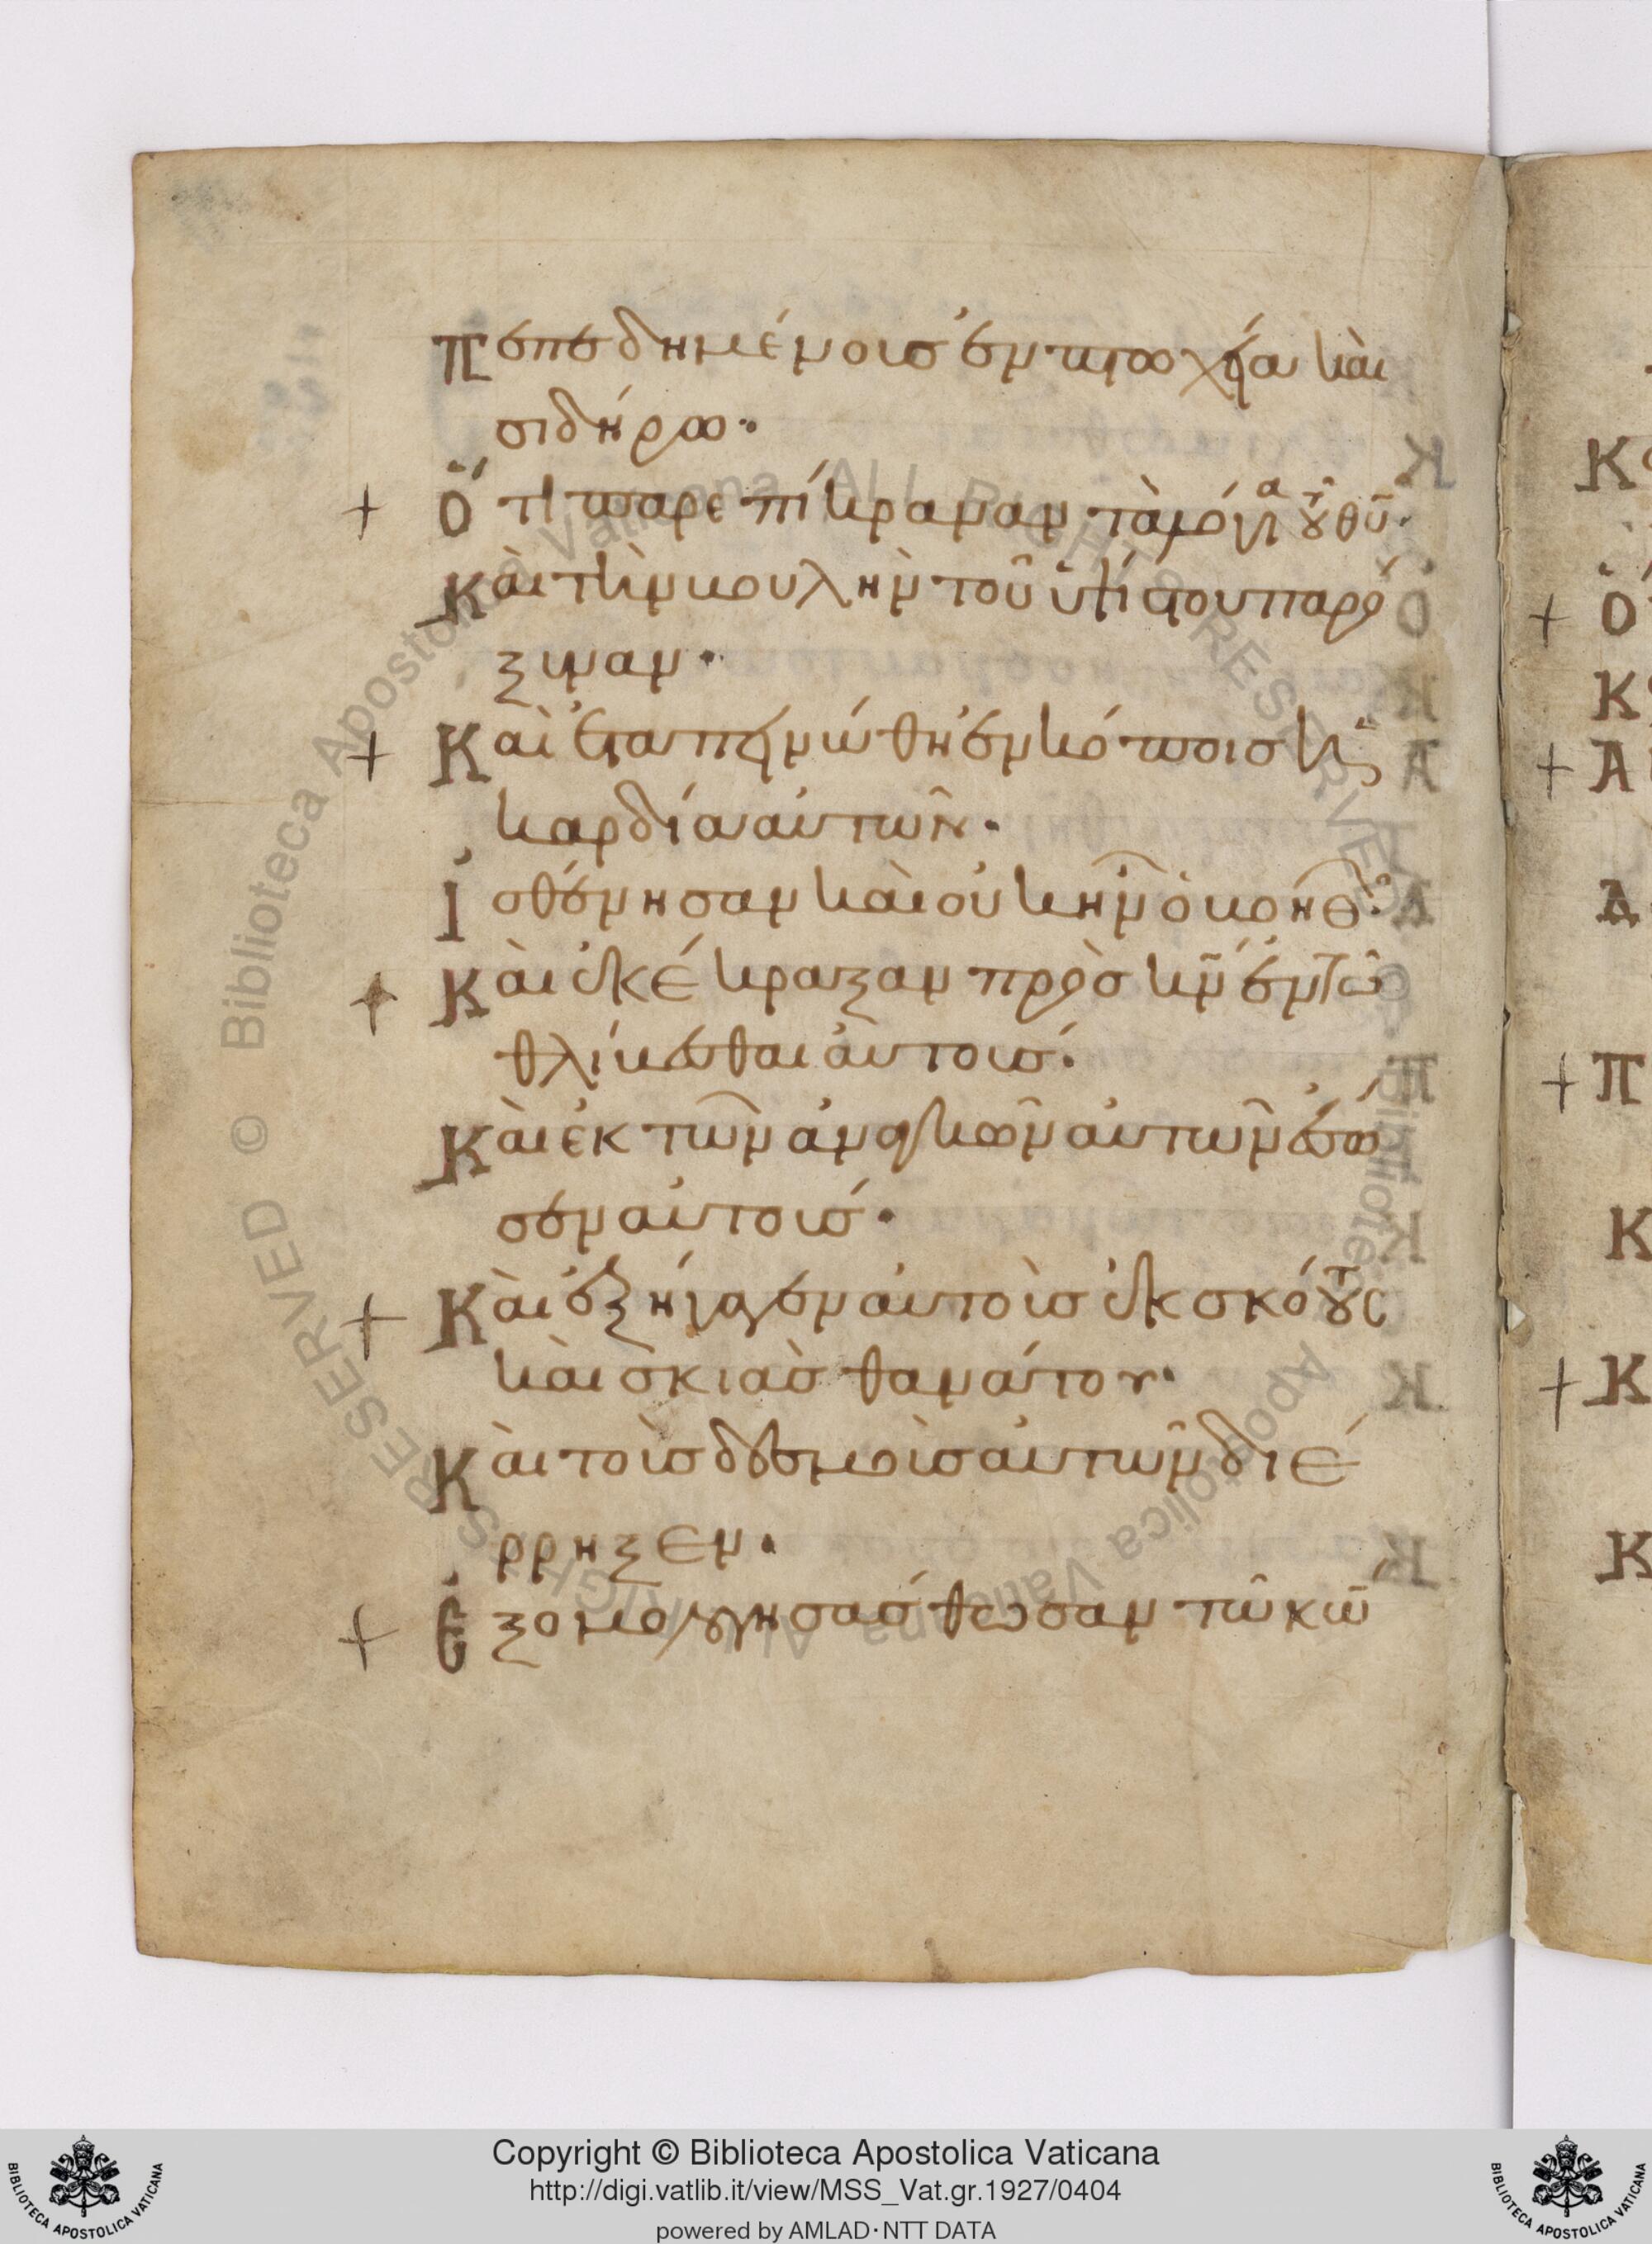 Πεπεδημένοισ ἐν πτωχεία κὰι
σιδήρω·
+ Ὅτι παρεπίκραναν τὰ λόγια τοῦ θῦ·
Κὰι τὴν βουλὴν τοῦ ὑψίστου παρώ
ξυναν·
+ Καὶ ἐταπεινώθη ἐν κόποισ ἡ
καρδία αὐτῶν·
Ἠσθένησαν κὰι οὐκ ἦν ὁ βοηθῶν·
+ Κὰι ἐκέκραξαν πρὸσ κν̄ ἐν τῶ
θλίβεσθαι ἀυτουσ·
Κὰι ἐκ τῶν ἀναγκῶν ἀυτῶν ἔσω
σεν ἀυτουσ·
+ Κὰι ἐξήγαγεν ἀυτοὺσ ἐκ σκότουσ
κὰι σκιᾶσ θανάτου·
Κὰι τοὺσ δεσμοὺσ ἀυτῶν διέ
ρρηξεν·
+ Ἐξομολογησάσθωσαν τῶ κω̄
K
+ Ὁ
K
+ Α
Δ
+ Π
K
+ K
K
Copyright © Biblioteca Apostolica Vaticana
http://digi.vatlib.it/view/MSS_Vat.gr.1927/0404
powered by AMLAD·NTT DATA
BIBLIOTECA APOSTOLICA VATICANA
BIBLIOTECA APOSTOLICA VATICANA